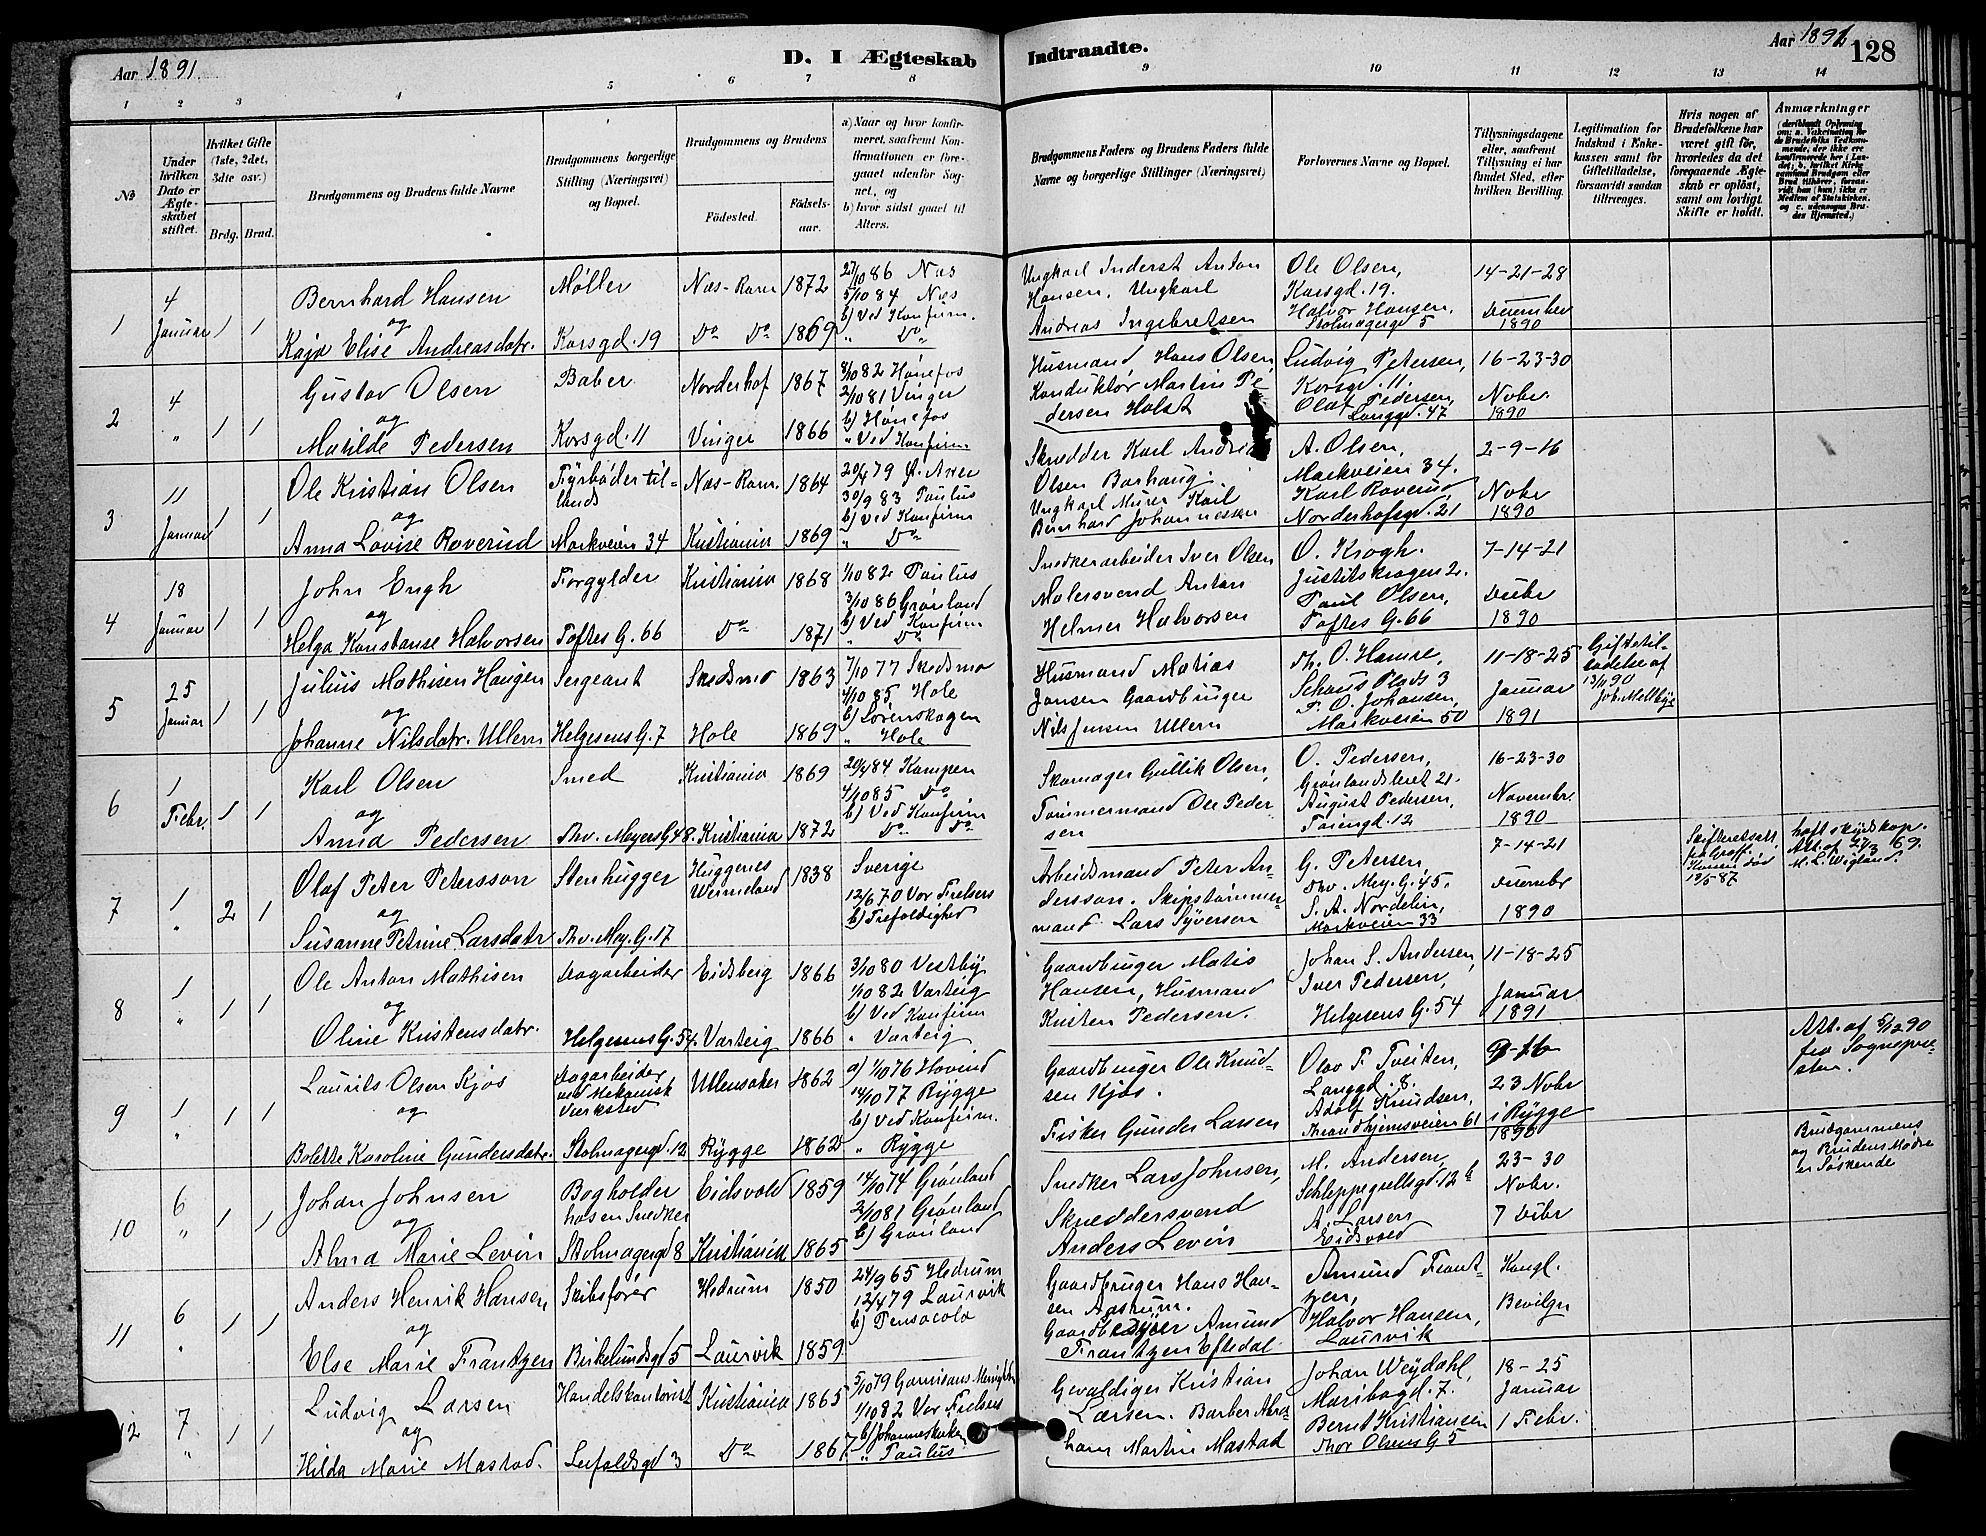 Aar 1891.
D. I Ægteskab Indtraadte.
Aar 1891
128
1 2 3 4 5 6 7 8 9 10 11 12 13 14
No
Under hvilken Dato er Ægteskabet stiftet.
Hvilket Gifte (1ste, 2det, 3dte osv.)
Brdg. Brud.
Brudgommens og Brudens fulde Navne
Brudgommens borgerlige Stilling (Næringsvei) og Bopæl.
Brudgommens og Brudens
Fødested. Fødsels-aar.
a) Naar og hvor konfirmeret, saafremt Konfirmationen er foregaaet udenfor Sognet, og
b) hvor sidst gaaet til Alters.
Brudgommens Faders og Brudens Faders fulde Navne og borgerlige Stillinger (Næringsvei)
Forlovernes Navne og Bopæl.
Tillysningsdagene eller, saafremt Tillysning ei har fundet Sted, efter hvilken Bevilling.
Legitimation for Indskud i Enkekassen samt for Giftetilladelse, forsaavidt saadan tiltrænges.
Hvis nogen af Brudefolkene har været gift før, hvorledes da det foregaaende Ægteskab er opløst, samt om lovligt Skifte er holdt.
Anmærkninger
1 4 Januar 1 1
Bernhard Hansen
og
Kaja Elise Andreasdatr.
Møller
Korsgd. 19
Næs-Rom. 1872
Do Do 1869
27/10 86 Næs
5/10 84 Næs
b) Ved Konfirm.
" Do
Ungkarl Inderst Anton
Hansen. Ungkarl
Andreas Ingebretsen
Ole Olsen,
Korsgd. 19.
Halvor Hansen,
Stolmagergd 5
14-21-28
December
1890
2 4 " 1 1
Gustav Olsen
og
Matilde Pedersen
Bager
Korsgd. 11
Norderhof 1867
Vinger 1866
8/10 82 Hønefos
2/10 81 Vinger
b) Hønefos
" Ved Konfirm
Husmand Hans Olsen
Konduktør Martin Pe
dersen Holst
Ludvig Petersen,
Korsgd. 11.
Olaf Pedersen,
Langgd. 47
16-23-30
Nobr.
1890
3 11 Januar 1 1
Ole Kristian Olsen
og
Anna Lovise Roverud
Fyrbøder til-
lands
Markveien 34
Næs-Rom. 1864
Kristiania 1869
20/4 79 Ø. Aker
30/9 83 Paulus
b) Ved Konfirm
" Do
Skrædder Karl Andreas
Olsen Borhaug.
Ungkarl Murer Karl
Bernhard Johannessen
A. Olsen,
Markveien 34.
Karl Roverud
Norderhofsgd. 21
2-9-16
Nobr
1890
4 18 Januar 1 1
John Engh
og
Helga Konstanse Halvorsen
Forgylder
Toftes G. 66
Kristiania 1868
Do 1871
1/10 82 Paulus
3/10 86 Grønland
b) Ved Konfirm
" Do
Snedkerarbeider Iver Olsen
Malersvend Anton
Helmer Halvorsen
O. Krogh.
Justitskragen 2.
Paul Olsen,
Toftes G. 66
7-14-21
Decbr
1890
5 25 Januar 1 1
Julius Mathisen Haugen
og
Johanne Nilsdatr. Ullern
Sergeant
Helgesens G. 7
Skedsmo 1863
Hole 1869
7/10 77 Skedsmo
4/10 85 Hole
b) Lørenskogen
" Hole
Husmand Matias
Jansen Gaardbruger
Nils Jensen Ullern
Th. O. Hamre,
Schous Plads 3
F. O. Johansen,
Markveien 50
11-18-25
Januar
1891
Giftetil-
ladelse af
13/11 90
Joh. Mellbye
6 1 Febr. 1 1
Karl Olsen
og
Anna Pedersen
Smed
Thv. Meyers G. 48.
Kristiania 1869
Kristiania 1872
20/4 84 Kampen
4/10 85 Do
b) Ved Konfirm
Do Do
Skomager Gullik Olsen,
Tømmermand Ole Peder
sen
O. Pedersen,
Grønlandsleret 21.
August Pedersen,
Tøiengd. 12
16-23-30
Novembr.
1890
7 1 " 2 1
Olaf Peter Petersson
og
Susanne Petrine Larsdatr
Stenhugger
Thv. Mey. G. 17
Huggenes
Wermeland 1838
Sverige
12/6 70 Vor Frelsers
b) Trefoldighed
Arbeidsmand Peter An-
dersson. Skipstømmer-
mand Lars Syversen
G. Petersen,
Thv. Mey. G. 45.
S. A. Nordelin,
Markveien 33
7-14-21
Decembr
1890
Skifteretsatt.
19/5 87
Att. af 27/3 69.
8 1 " 1 1
Ole Anton Mathisen
og
Oline Kristensdatr.
Dagarbeider
Helgesens G. 54.
Eidsberg 1866
Varteig 1866
3/10 80 Vestby
1/10 82 Varteig
b) Ved Konfirm
" Varteig
Gaardbruger Matis
Hansen, Husmand
Kristen Pedersen.
Johan S. Andersen,
Iver Pedersen,
Helgesens G. 54
11-18-25
Januar
1891
9 1 " 1 1
Laurits Olsen Kjos
og
Bolette Karoline Gundersdatr.
Dagarbeider
ved Mekanisk
Værksted
Stolmagergd. 12
Ullensaker 1862
Rygge 1862
a) 1/10 76 Hovind
14/10 77 Rygge
b) Ved Konfirm.
" Rygge
Gaardbruger Ole Knud-
sen Kjos.
Fisker Gunder Larsen
Olav T. Tveiten,
Langgd. 8.
Adolf Knudsen,
Trondhjemsveien 61
9-16
23 Nobr
i Rygge
1890
Att. af 5/12 90
fra Sognepræ-
sten.
10 6 " 1 1
Johan Johnsen
og
Alma Marie Levin
Bogholder
hos en Snedker
Stolmagergd 8
Eidsvold 1859
Kristiania 1865
14/10 74 Grønland
2/10 81 Grønland
b) Grønland
Snedker Lars Johnsen,
Skræddersvend
Anders Levin
M. Andersen,
Schleppegrellsgd. 12 b
A. Larsen
Eidsvold
23-30
Nobr.
7 Decbr
Brudgommens
og Brudens Mødre
er Søskende
11 6 " 1 1
Anders Henrik Hansen
og
Else Marie Frantzen
Skibsfører
Birkelundsgd 5
Hedrum 1850
Laurvik 1859
24/9 65 Hedrum
12/4 79 Laurvik
b) Pensacola
Gaardbruger Hans Han-
sen Aasrum.
Gaardbruger Amund
Frantzen Eftedal
Amund Frant-
zen,
Halvor Hansen,
Laurvik
Kongl.
Bevilgn
12 7 " 1 1
Ludvig Larsen
og
Hilda Marie Mastad.
Handelskontorist
Leifaldsgd 3
Kristiania 1865
Do 1867
5/10 79 Garnisons Menighed
1/10 82 Vor Frelsers
b) Johanneskirken
" Paulus
Gevaldiger Kristian
Larsen. Barber Abra-
ham Martin Mastad
Johan Weydahl,
Maribogd. 7.
Bernt Kristiansen
Thor Olsens G 5
18-25
Januar
1 Febr.